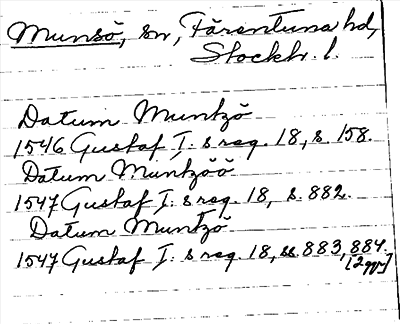 Munsö, sn, Färentuna hd,
Stockh. l.
Datum Muntzö
1546 Gustaf I:s reg. 18, s. 158.
Datum Muntzöö
1547 Gustaf I:s reg. 18, s. 882.
Datum Muntzö
1547 Gustaf I:s reg. 18, ss. 883, 884.
[2 ggr]